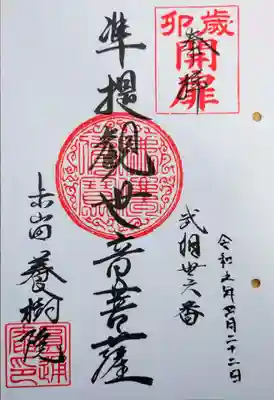 歳卯
開扉
奉拝
令和五年四月二十二日
武相丗六番
準提観世音菩薩
養樹院